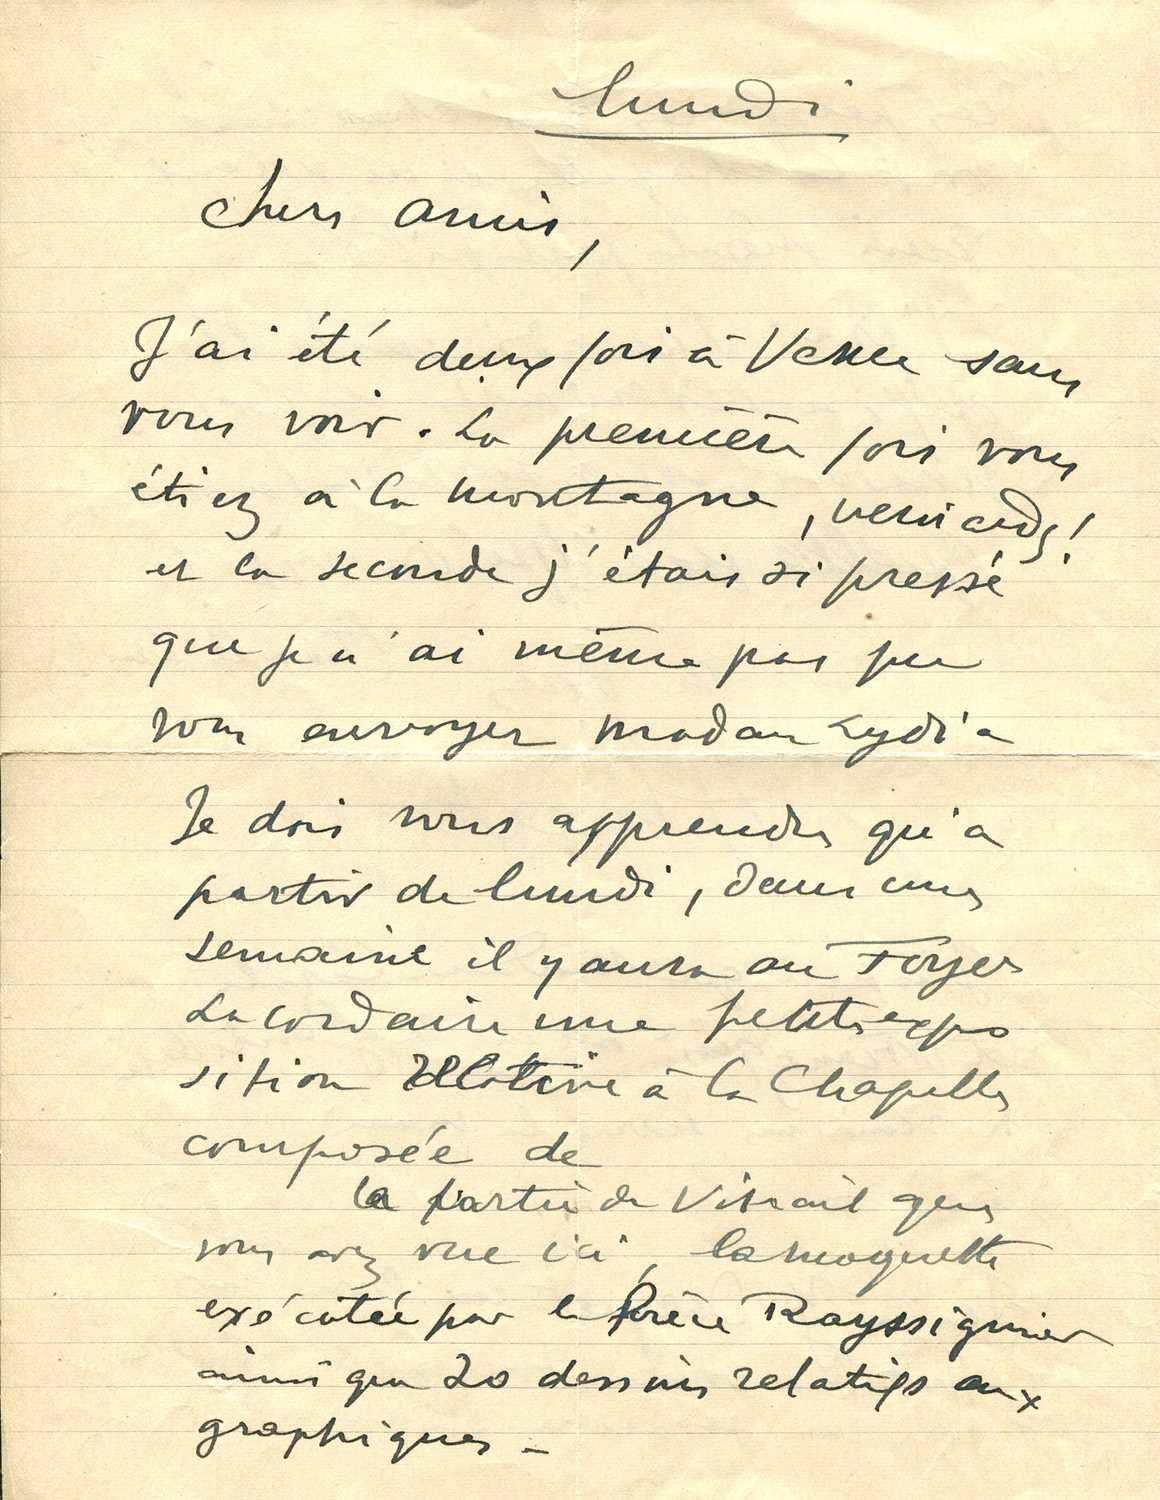 lundi
chers amis,
J'ai été deux fois à Vence sans
vous voir. La première fois vous
étiez à la montagne, veinards!
et la seconde j'étais si pressé
que je n'ai même pas pu
vous envoyer madam Lydia
Je dois vous apprendre qu'a
partir de lundi, dans une
semaine il y aura au Foyer
Lacordaire une petite expo
sition relative à la Chapelle
composée de
la partie de Vitrail que
vous avez vue ici, la maquette
exécutée par le frère Rayssignier
ainsi que 20 dessins relatifs aux
graphiques -